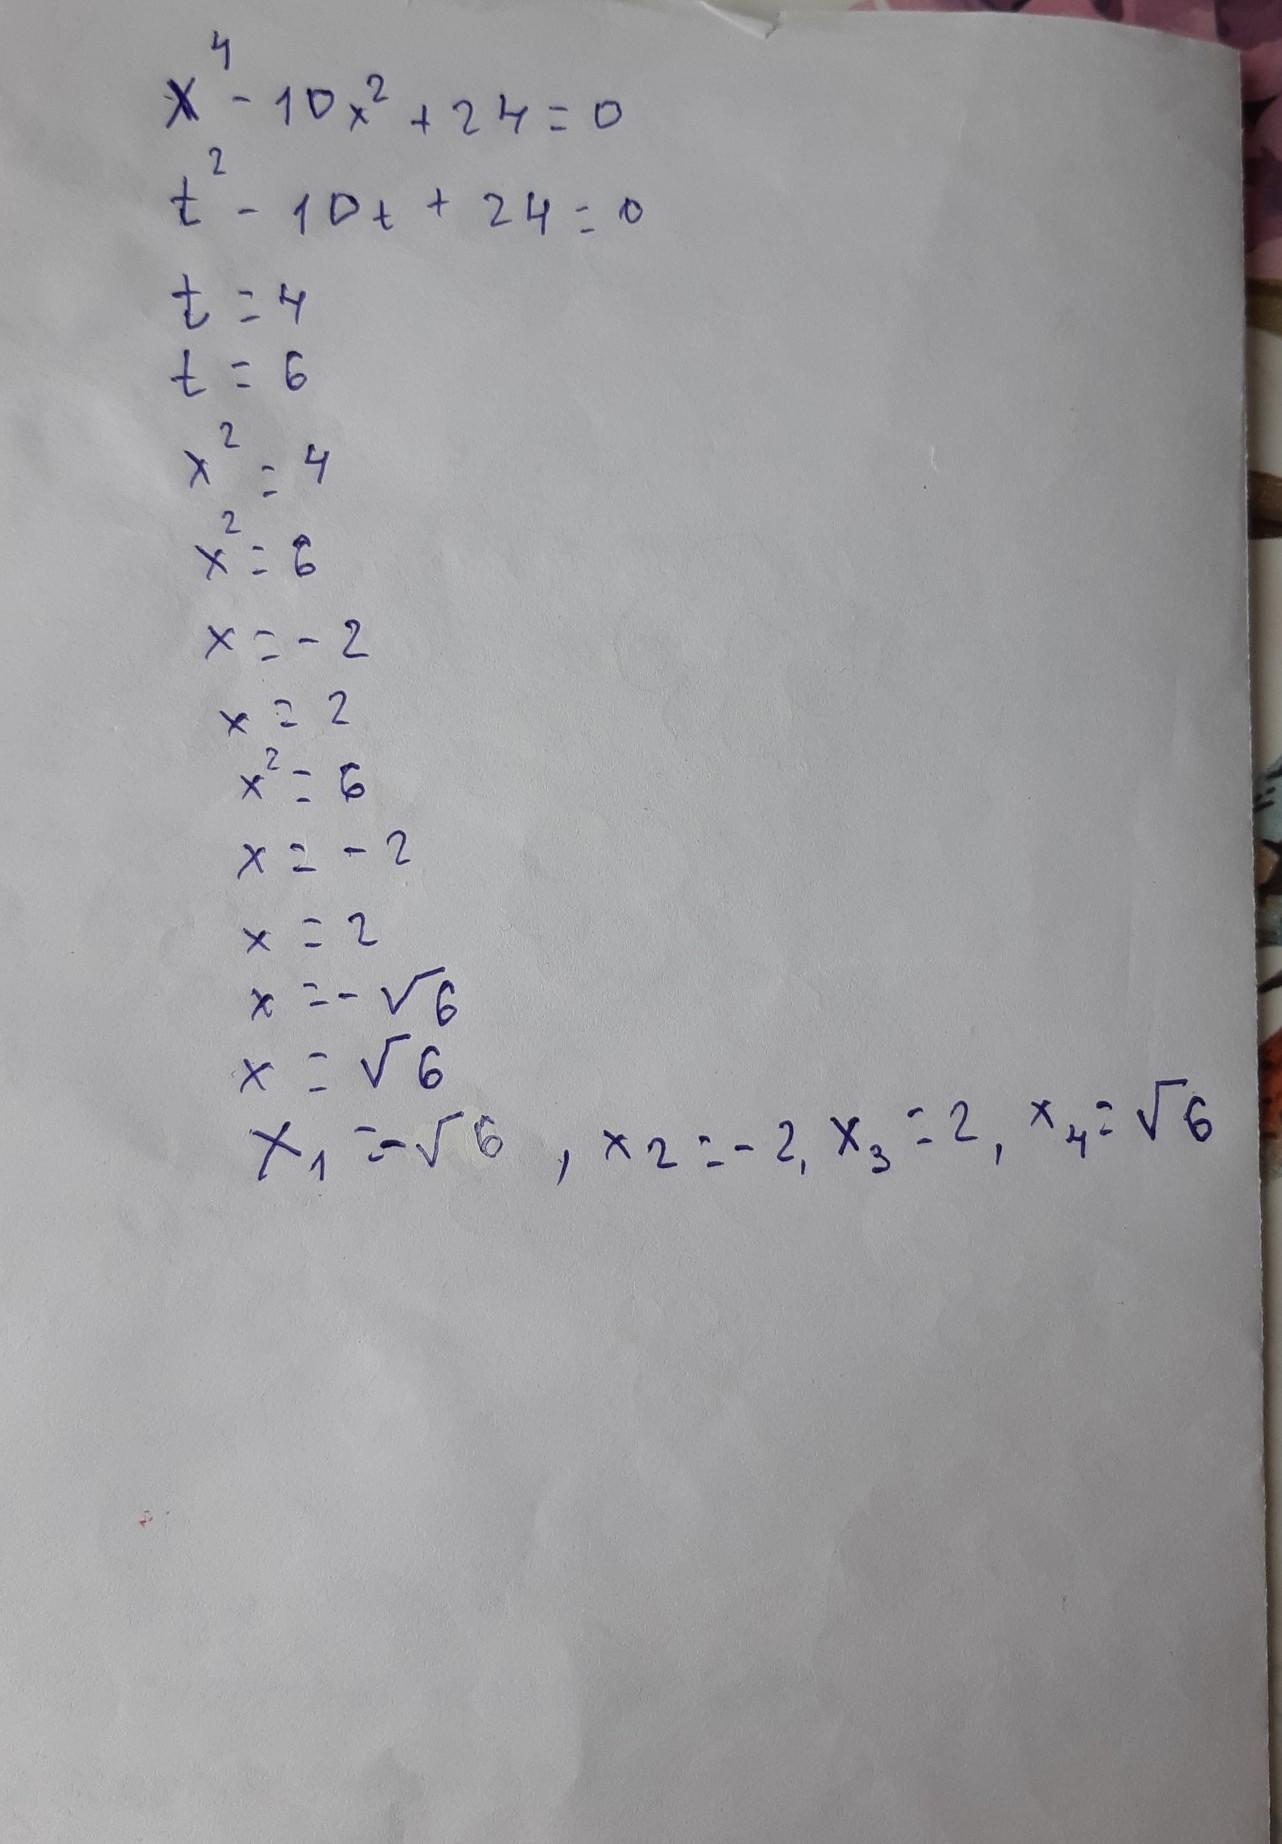 x⁴ - 10x² + 24 = 0
t² - 10t + 24 = 0
t = 4
t = 6
x² = 4
x² = 6
x = - 2
x = 2
x² = 6
x = - 2
x = 2
x = - √6
x = √6
x₁ = -√6 , x₂ = - 2, x₃ = 2, x₄ = √6